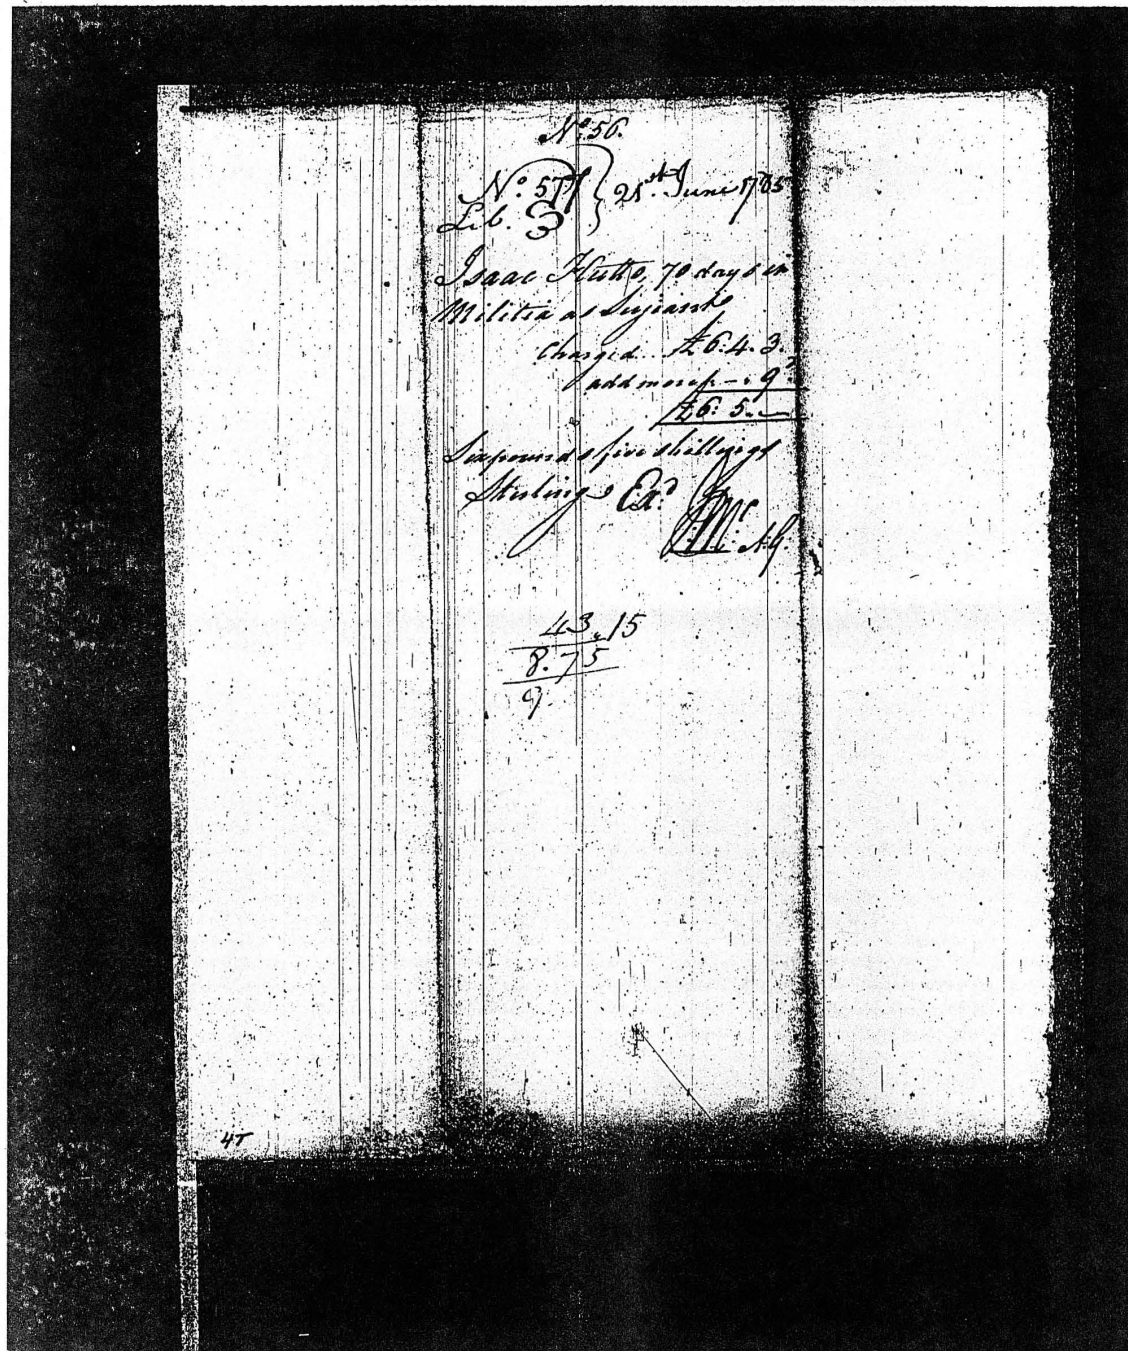 No. 56.
No. 577 } 21st June 1785
Lib. 3
Isaac Hutto, 70 days in
Militia as Serjeant
Charged £6:4.3.
add more - : 9
£6: 5. -
Six pounds five shillings
Sterling Exd
J. Mc. A.G.
43.15
8.75
9
4T